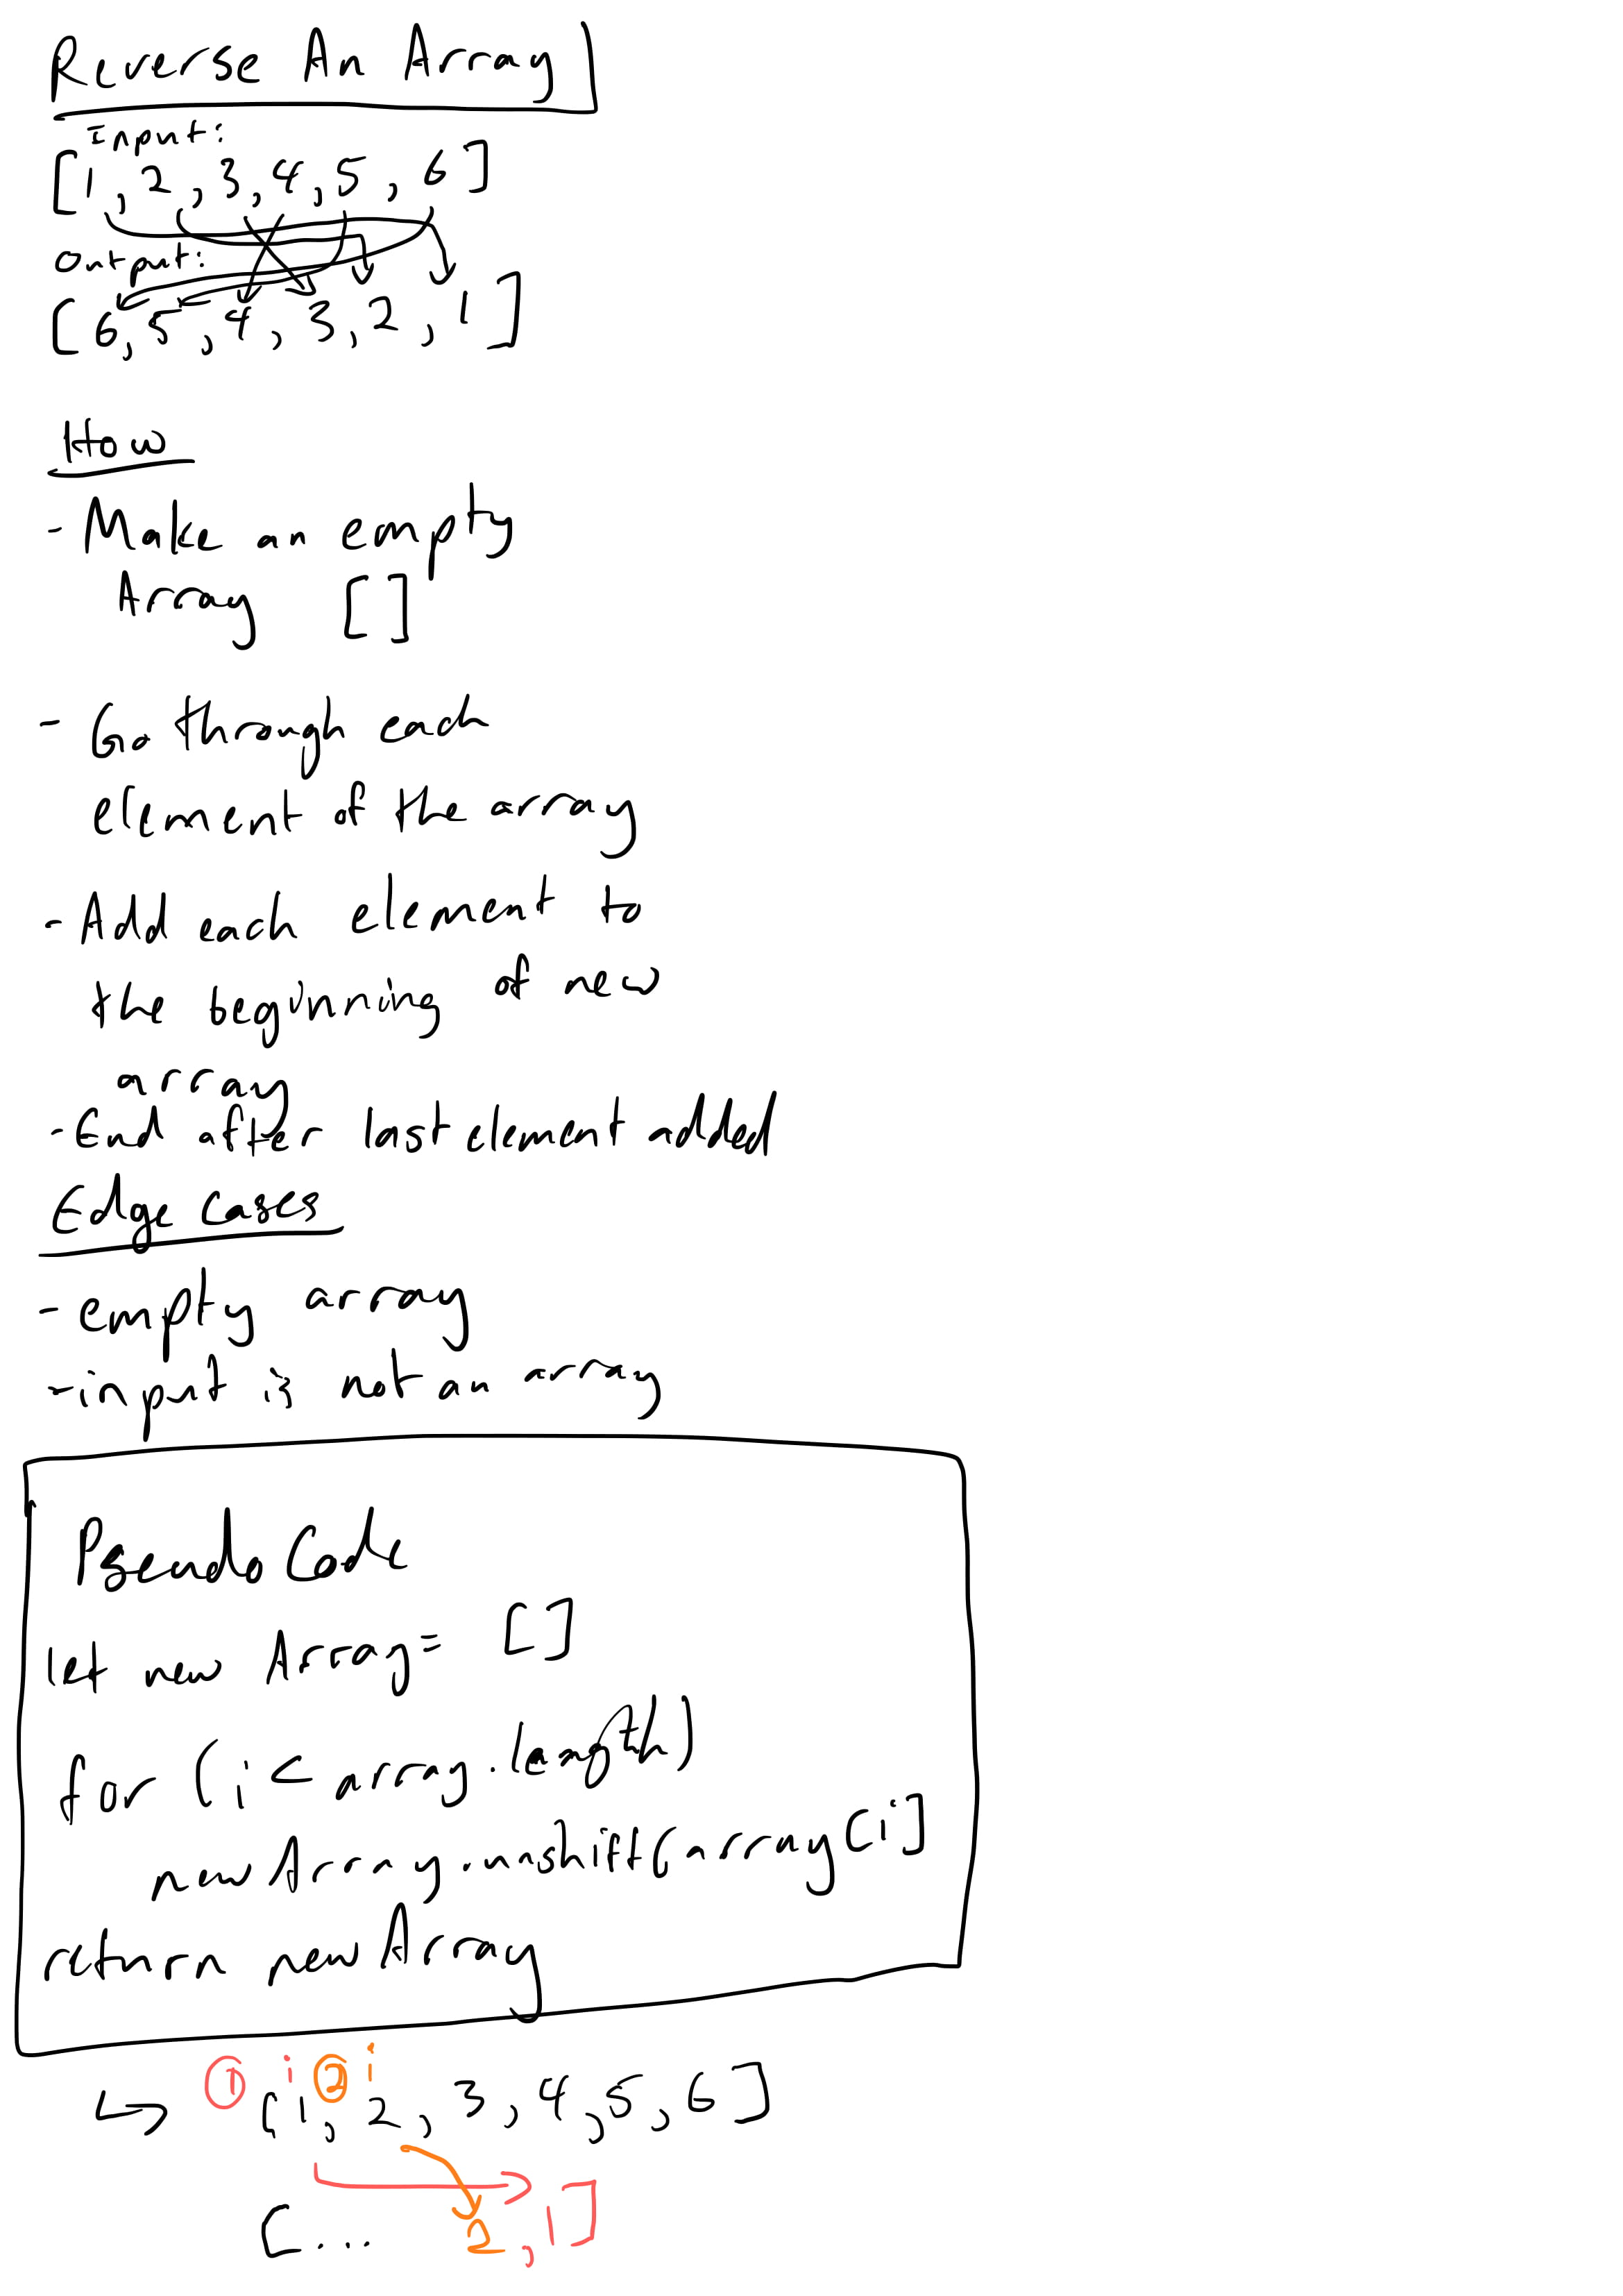 Reverse An Array
Input:
[1, 2, 3, 4, 5, 6]
output:
[6, 5, 4, 3, 2, 1]
How
- Make an empty
Array []
- Go through each
element of the array
- Add each element to
the beginning of new
array
- End after last element added
Edge cases
- empty array
- input is not an array
Pseudo Code
let new Array = []
for (i < array.length)
newArray.unshift(array[i]
return newArray
① i ② i
↳ [1, 2, 3, 4, 5, 6]
[... 2, 1]